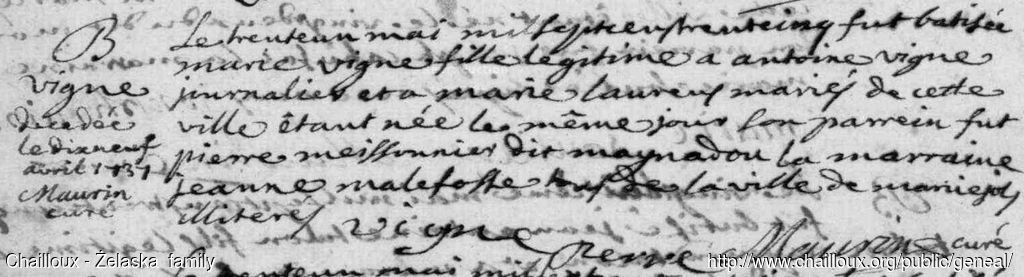 B
vigne
décédée
le dixneuf
avril 1737
Maurin
curé
Le trenteun mai mil sept cens trentecinq fut batisée
marie vigne fille legitime a antoine vigne
journalier et a marie laurens mariés de cette
ville étant née le même jour son parrein fut
pierre meissonnier dit maynadou la marraine
jeanne malefosse tous de la ville de mariejols
illiterés vigne
Pierre Maurin curé
trenteun mai mil
Chailloux - Żelaska family
http://www.chailloux.org/public/geneal/